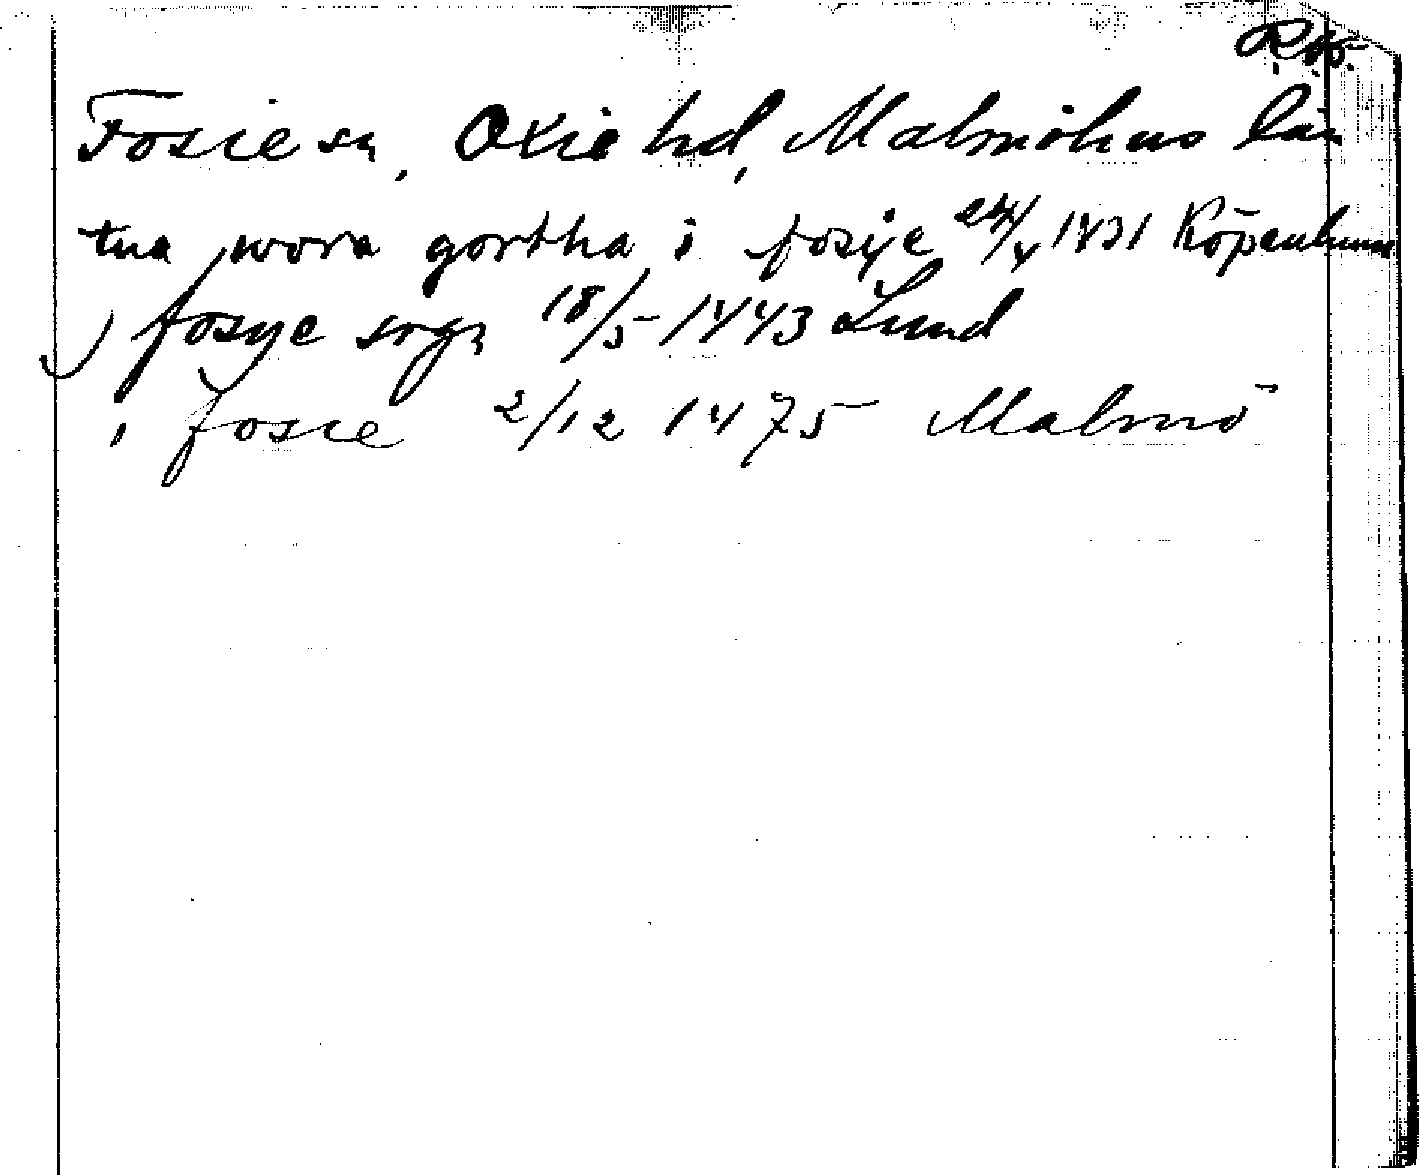 Fosie sn, Oxie hd, Malmöhus län
tua wora gortha i fosije 24/4 1431 Köpenhamn
J fosye sogn 18/5 1443 Lund
i fosie 2/12 1475 Malmö